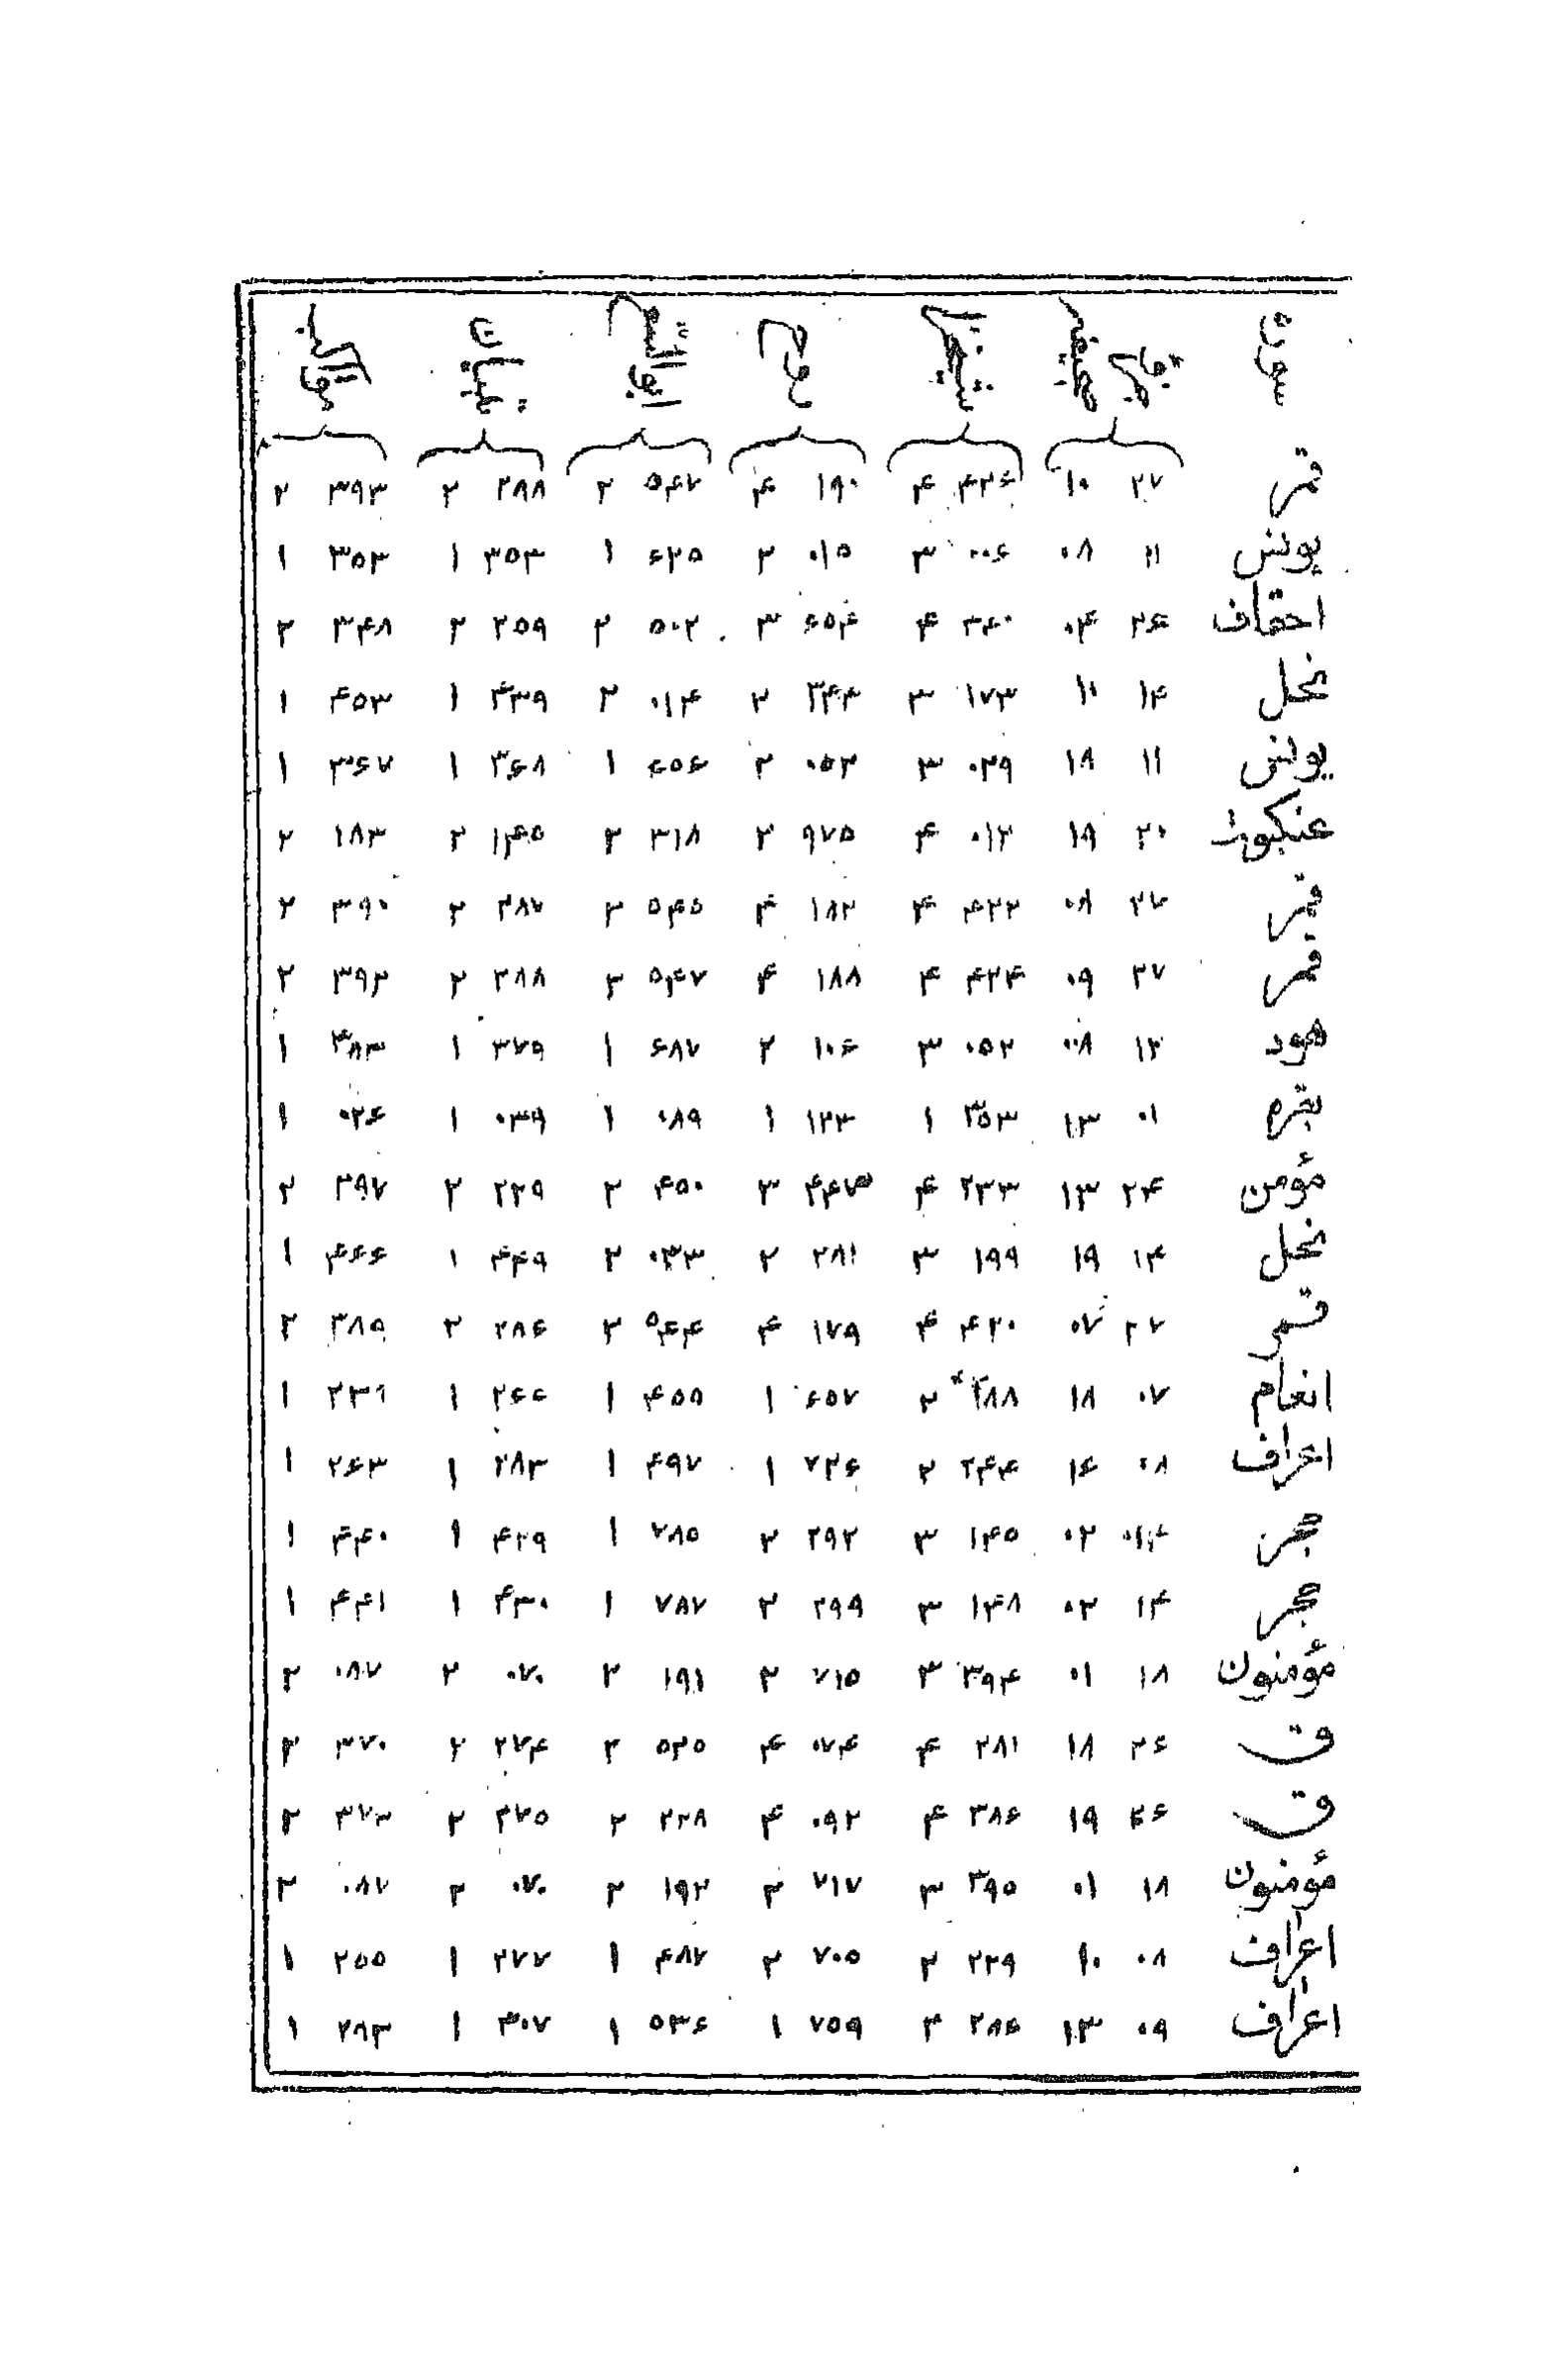 سورة جزء صفحه شیخنجفی روح ابوالفتوح تبیان
قمر ۲۷ ۱۰ ۴۲۶ ۴ ۱۹۰ ۴ ۵۴۷ ۲ ۲۸۸ ۲ ۳۹۳ ۲
یونس ۱۱ ۰۸ ۰۰۶ ۳ ۰۱۵ ۲ ۶۲۵ ۱ ۳۵۳ ۱ ۳۵۳ ۱
احقاف ۲۶ ۰۴ ۳۴۰ ۴ ۶۵۴ ۳ ۵۰۲ ۲ ۲۵۹ ۲ ۳۴۸ ۲
نحل ۱۴ ۱۰ ۱۷۳ ۳ ۳۴۴ ۲ ۰۱۴ ۲ ۴۳۹ ۱ ۴۵۳ ۱
یونس ۱۱ ۱۸ ۰۲۹ ۳ ۰۵۳ ۲ ۶۵۶ ۱ ۳۶۸ ۱ ۳۶۷ ۱
عنکبوت ۲۰ ۱۹ ۰۱۲ ۴ ۹۷۵ ۲ ۳۱۸ ۲ ۱۴۵ ۲ ۱۸۳ ۲
قمر ۲۷ ۰۸ ۴۲۲ ۴ ۱۸۲ ۴ ۵۴۵ ۲ ۲۸۷ ۲ ۳۹۰ ۲
قمر ۲۷ ۰۹ ۴۲۴ ۴ ۱۸۸ ۴ ۵۴۷ ۲ ۲۸۸ ۲ ۳۹۲ ۲
هود ۱۲ ۰۸ ۰۵۲ ۳ ۱۰۶ ۲ ۶۸۷ ۱ ۳۷۹ ۱ ۳۸۳ ۱
بقره ۰۱ ۱۳ ۳۵۳ ۱ ۱۲۳ ۱ ۰۸۹ ۱ ۰۳۹ ۱ ۰۲۶ ۱
مؤمن ۲۴ ۱۳ ۲۳۳ ۴ ۴۴۷ ۳ ۴۵۰ ۲ ۲۲۹ ۲ ۲۹۷ ۲
نحل ۱۴ ۱۹ ۱۹۹ ۳ ۲۸۱ ۲ ۰۳۳ ۲ ۴۴۹ ۱ ۴۶۶ ۱
قمر ۲۷ ۰۷ ۴۲۰ ۴ ۱۷۹ ۴ ۵۴۴ ۲ ۲۸۶ ۲ ۳۸۹ ۲
انعام ۰۷ ۱۸ ۱۸۸ ۲ ۶۵۷ ۱ ۴۵۵ ۱ ۲۶۶ ۱ ۲۳۹ ۱
اعراف ۰۸ ۱۴ ۲۴۴ ۲ ۷۲۶ ۱ ۴۹۷ ۱ ۲۸۳ ۱ ۲۶۳ ۱
حجر ۰۱۴ ۰۲ ۱۴۵ ۳ ۲۹۲ ۲ ۷۸۵ ۱ ۴۲۹ ۱ ۴۴۰ ۱
حجر ۱۴ ۰۳ ۱۴۸ ۳ ۲۹۹ ۲ ۷۸۷ ۱ ۴۳۰ ۱ ۴۴۱ ۱
مؤمنون ۱۸ ۰۱ ۳۹۴ ۳ ۷۱۵ ۲ ۱۹۱ ۲ ۰۷۰ ۲ ۰۸۷ ۲
ق ۲۶ ۱۸ ۳۸۱ ۴ ۰۷۴ ۴ ۵۲۵ ۲ ۲۷۴ ۲ ۳۷۰ ۲
ق ۲۶ ۱۹ ۳۸۶ ۴ ۰۹۲ ۴ ۲۲۸ ۲ ۲۷۵ ۲ ۳۷۳ ۲
مؤمنون ۱۸ ۰۱ ۳۹۵ ۳ ۷۱۷ ۲ ۱۹۲ ۲ ۰۷۰ ۲ ۰۸۷ ۲
اعراف ۰۸ ۱۰ ۲۲۹ ۲ ۷۰۵ ۲ ۴۸۷ ۱ ۲۷۷ ۱ ۲۵۵ ۱
اعراف ۰۹ ۱۳ ۲۸۶ ۲ ۷۵۹ ۱ ۵۳۶ ۱ ۳۰۷ ۱ ۲۸۳ ۱